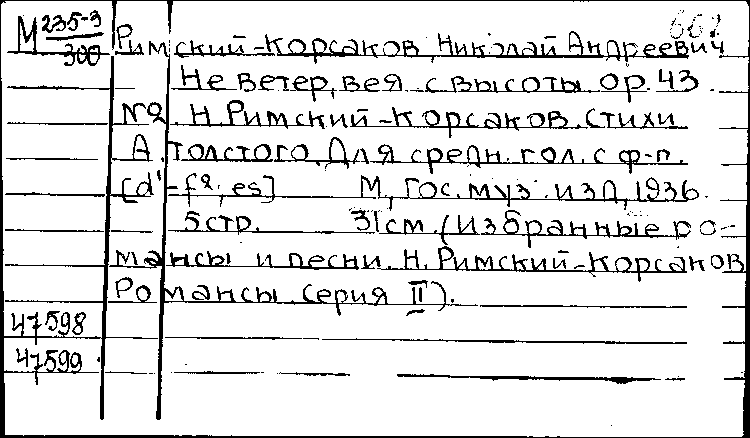 М 235-3
300
662
Римский-Корсаков, Николай Андреевич
Не ветер, вея с высоты. ор. 43.
№2. Н. Римский-Корсаков. Стихи
А. Толстого. Для средн. гол. с ф-п.
[d¹-f², es] М., Гос. муз. изд, 1936.
5 стр. 31 см. (Избранные ро-
мансы и песни. Н. Римский-Корсаков
Романсы. Серия II).
47598
47599